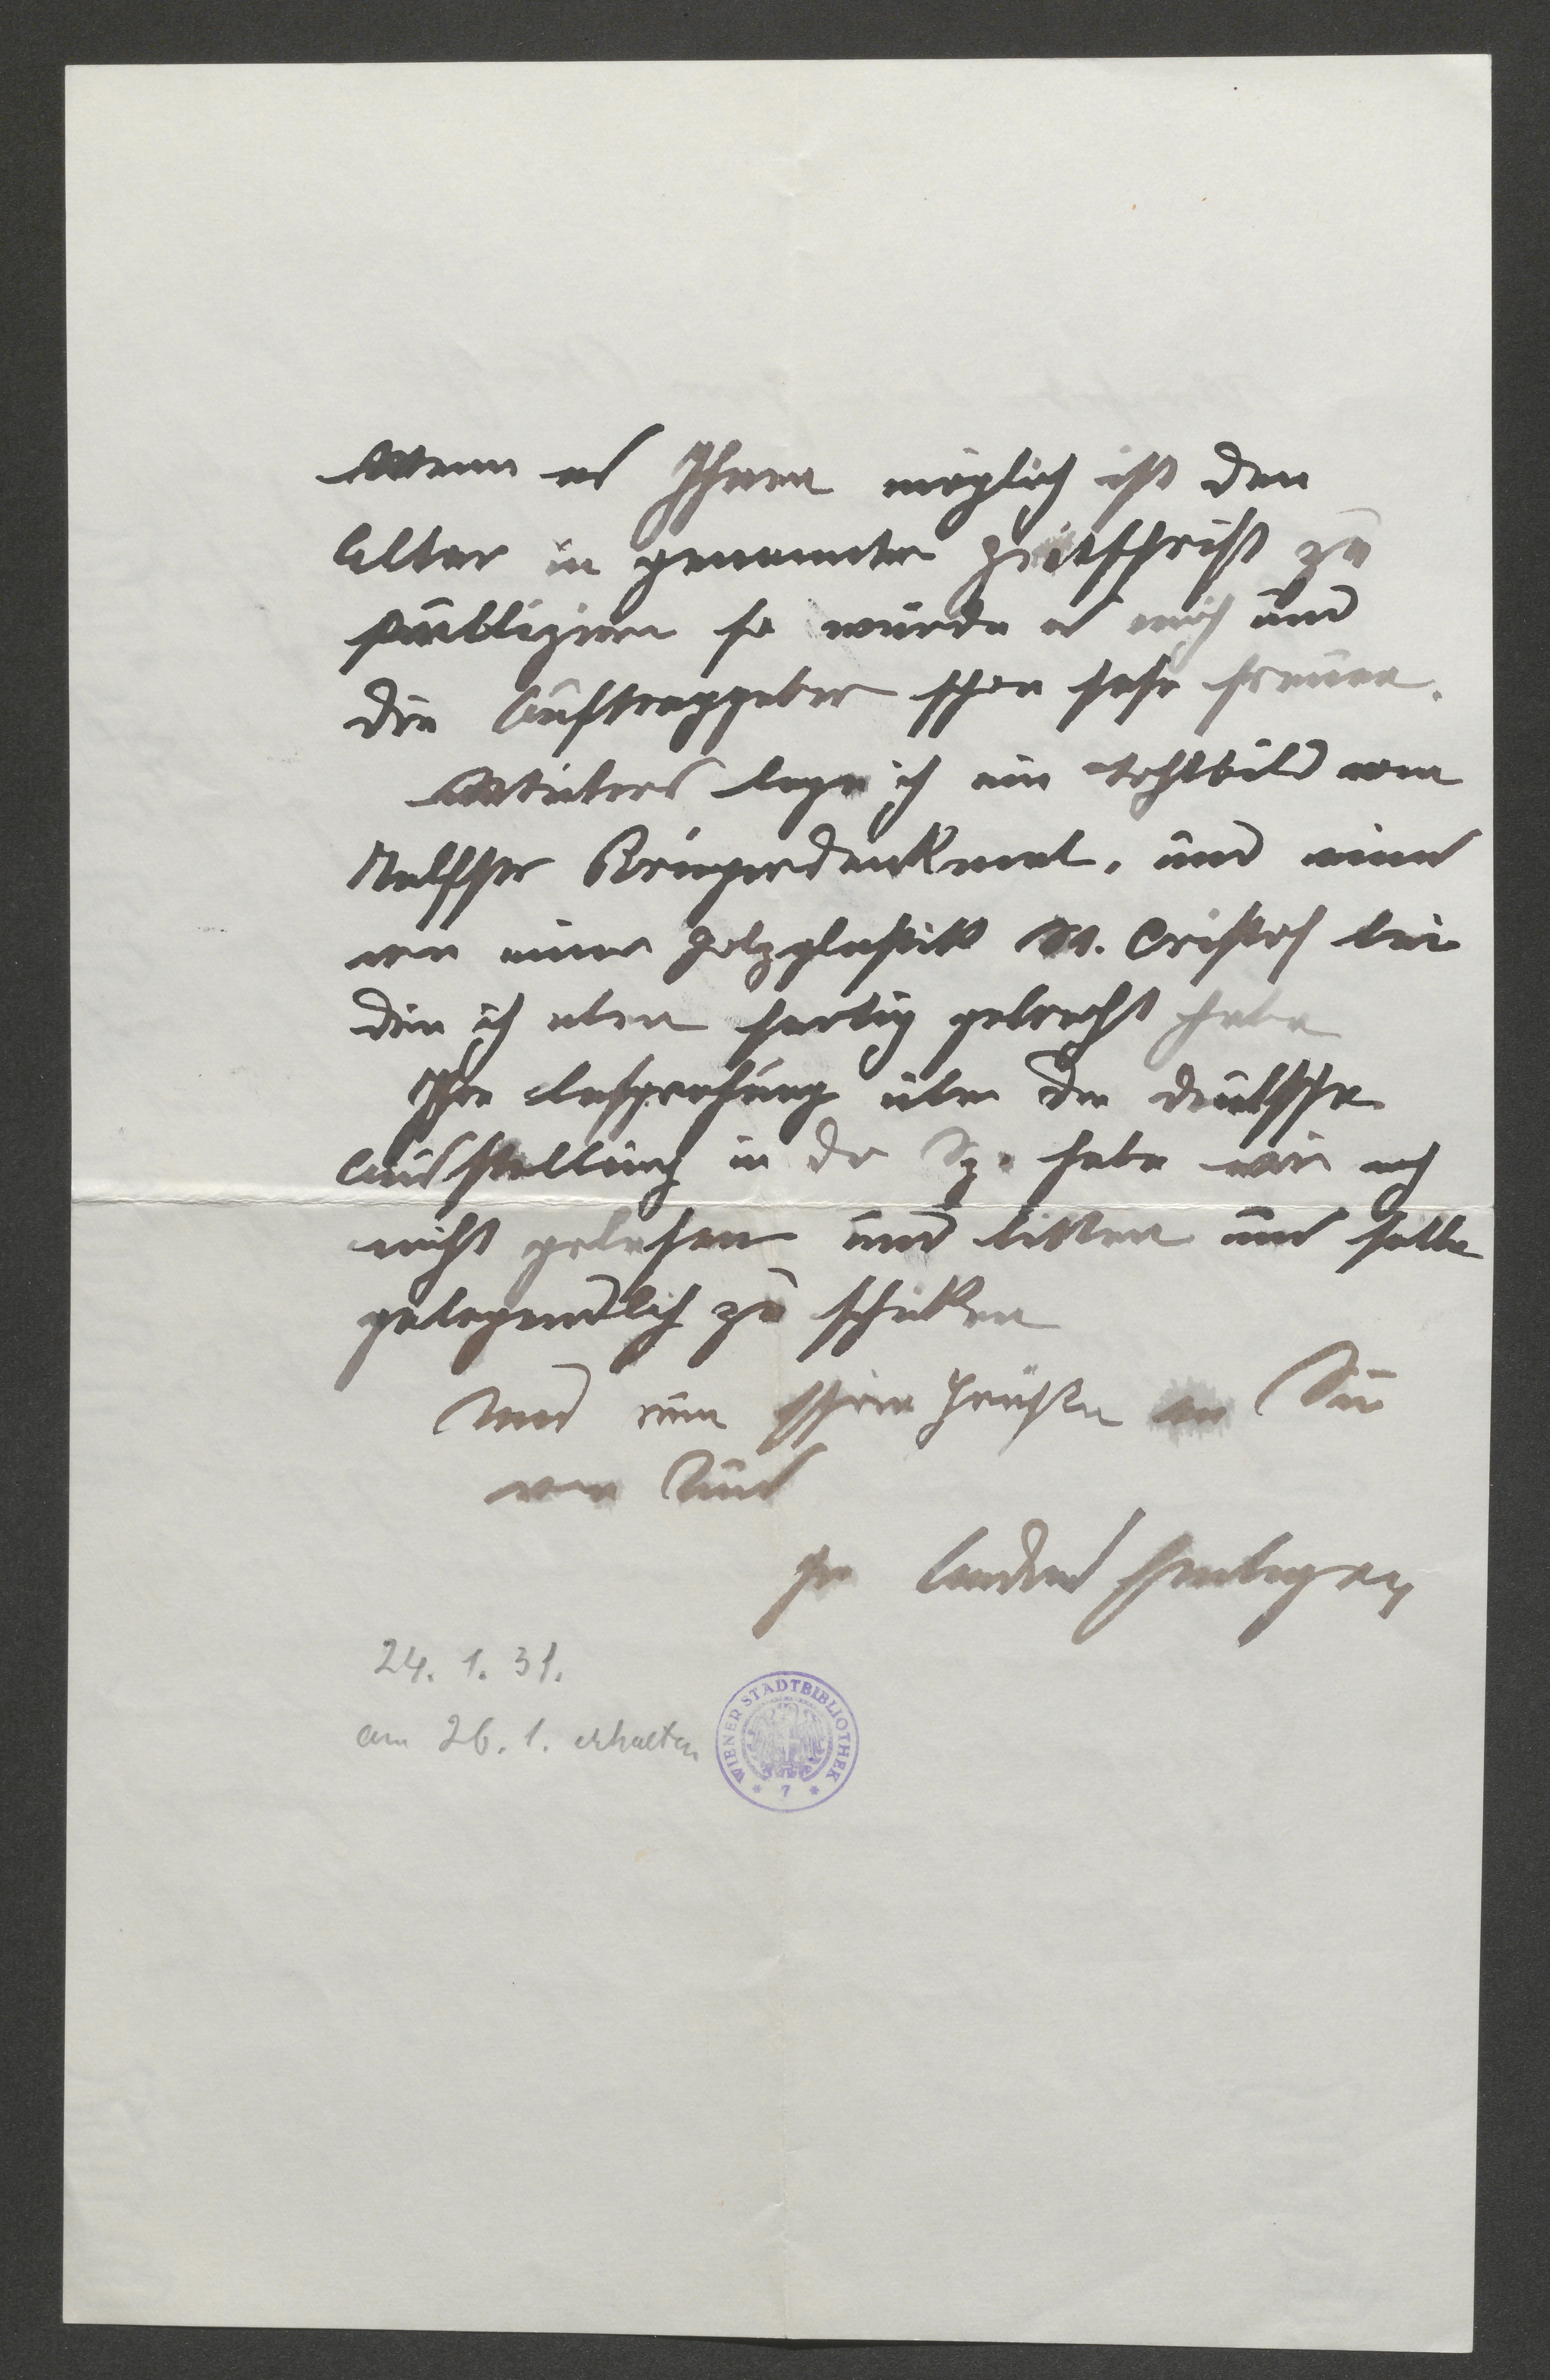 Wenn es Ihnen möglich ist den
Altar in genannter Zeitschrift zu
publizieren so würde es mich und
die Auftraggeber schon sehr freuen.
Weiters lege ich ein Lichtbild vom
Kriegerdenkmal, und eines
von einer Holzplastik St. Cristof bei
die ich eben fertig gebracht habe
Ihre Besprechung über die deutsche
Ausstellung in der Ztg. habe wir noch
nicht gelesen und bitten uns selbe
gelegendlich zu schicken
Und nun schöne Grüße an Sie
von Uns
Ihr
24. 1. 31.
am 26. 1. erhalten
WIENER STADTBIBLIOTHEK
* 7 *